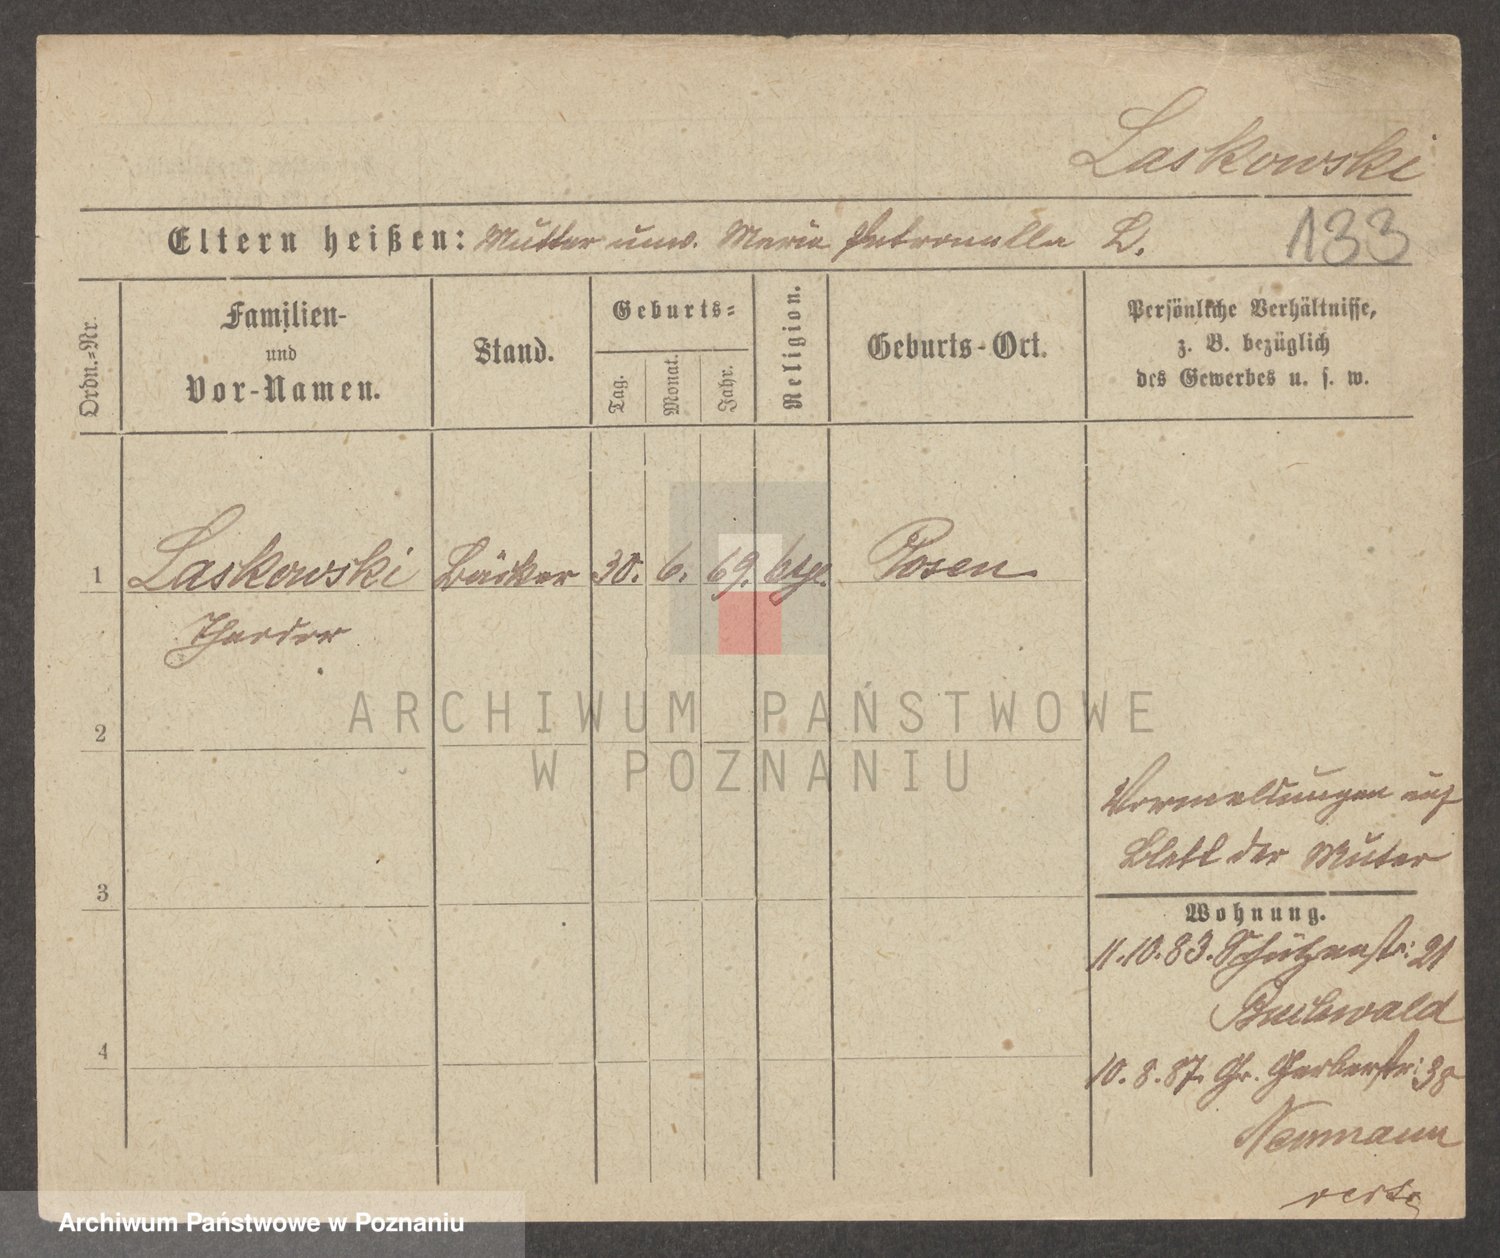 Laskowski
133
Eltern heißen: Mutter unv. Maria Petronella L.
Ordn.=Nr.
Familien-
und
Vor-Namen.
Stand.
Geburts=
Tag.
Monat.
Jahr.
Religion.
Geburts-Ort.
Persönliche Verhältnisse,
z. B. bezüglich
des Gewerbes u. s. w.
1 Laskowski Bäcker 30. 6. 69. Posen
Theodor
2
3
4
Vormeldungen auf
Blatt der Mutter
Wohnung.
11.10.83. Schützenstr: 21
Buchwald
10.8.87. Gr. Gerberstr: 38
Neumann
ARCHIWUM PAŃSTWOWE
W POZNANIU
Archiwum Państwowe w Poznaniu